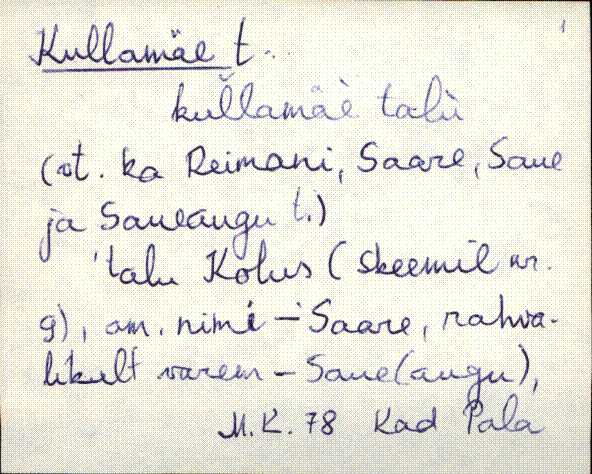 1
Kullamäe t.
kul̆lamäè talù
(vt. ka Reimani, Saare, Saue
ja Saueaugu t.)
'talu Kolus (skeemil nr.
9), am. nimi – Saare, rahva-
likult varem – Saue(augu),
M.K. 78 Kad Pala